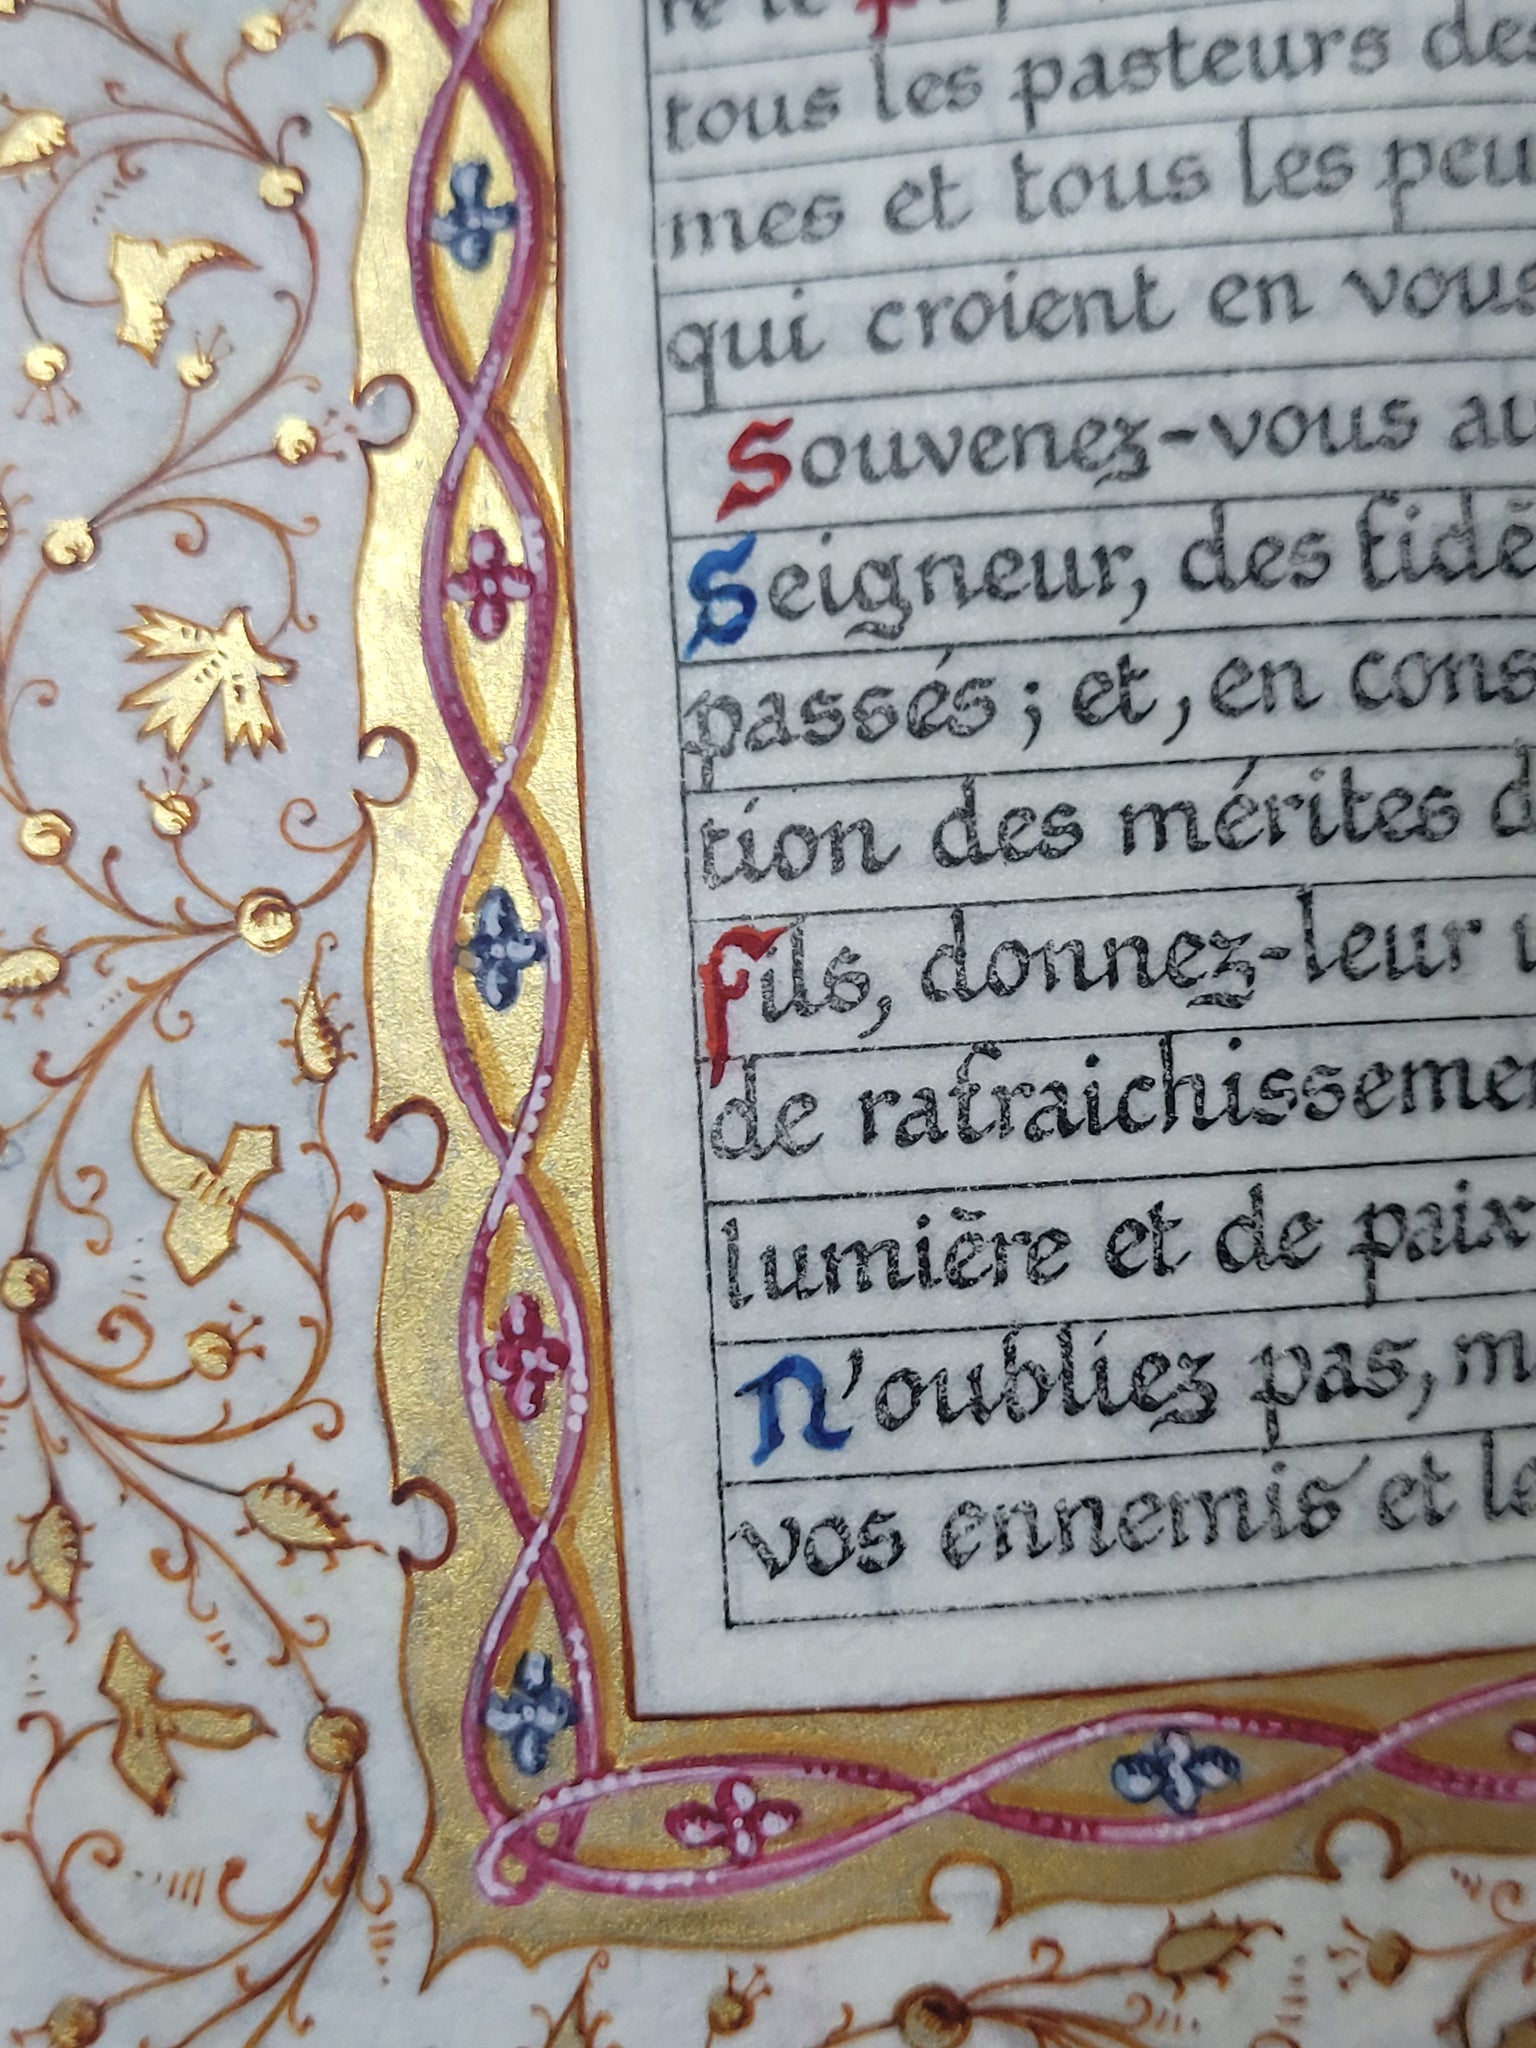 tous les pasteurs des
mes et tous les peu
qui croient en vous
Souvenez-vous au
Seigneur, des fidè
passés ; et, en cons
tion des mérites d
Fils, donnez-leur
de rafraichissemen
lumière et de paix
N'oubliez pas, m
vos ennemis et le